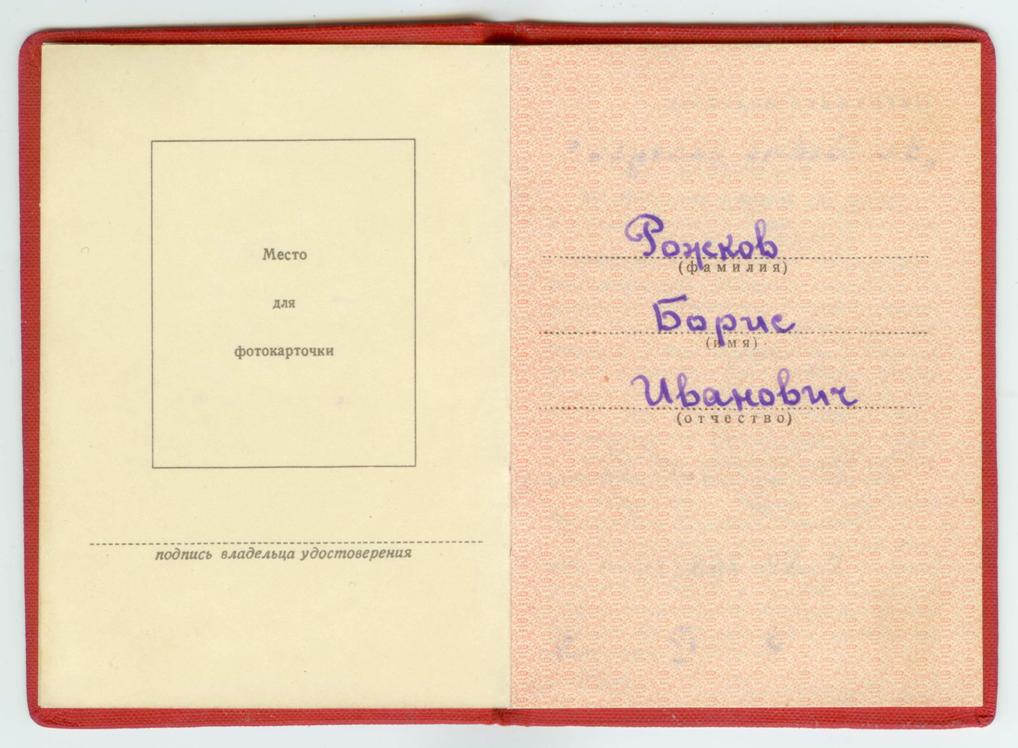 Место
для
фотокарточки
подпись владельца удостоверения
Рожков
(фамилия)
Борис
(имя)
Иванович
(отчество)